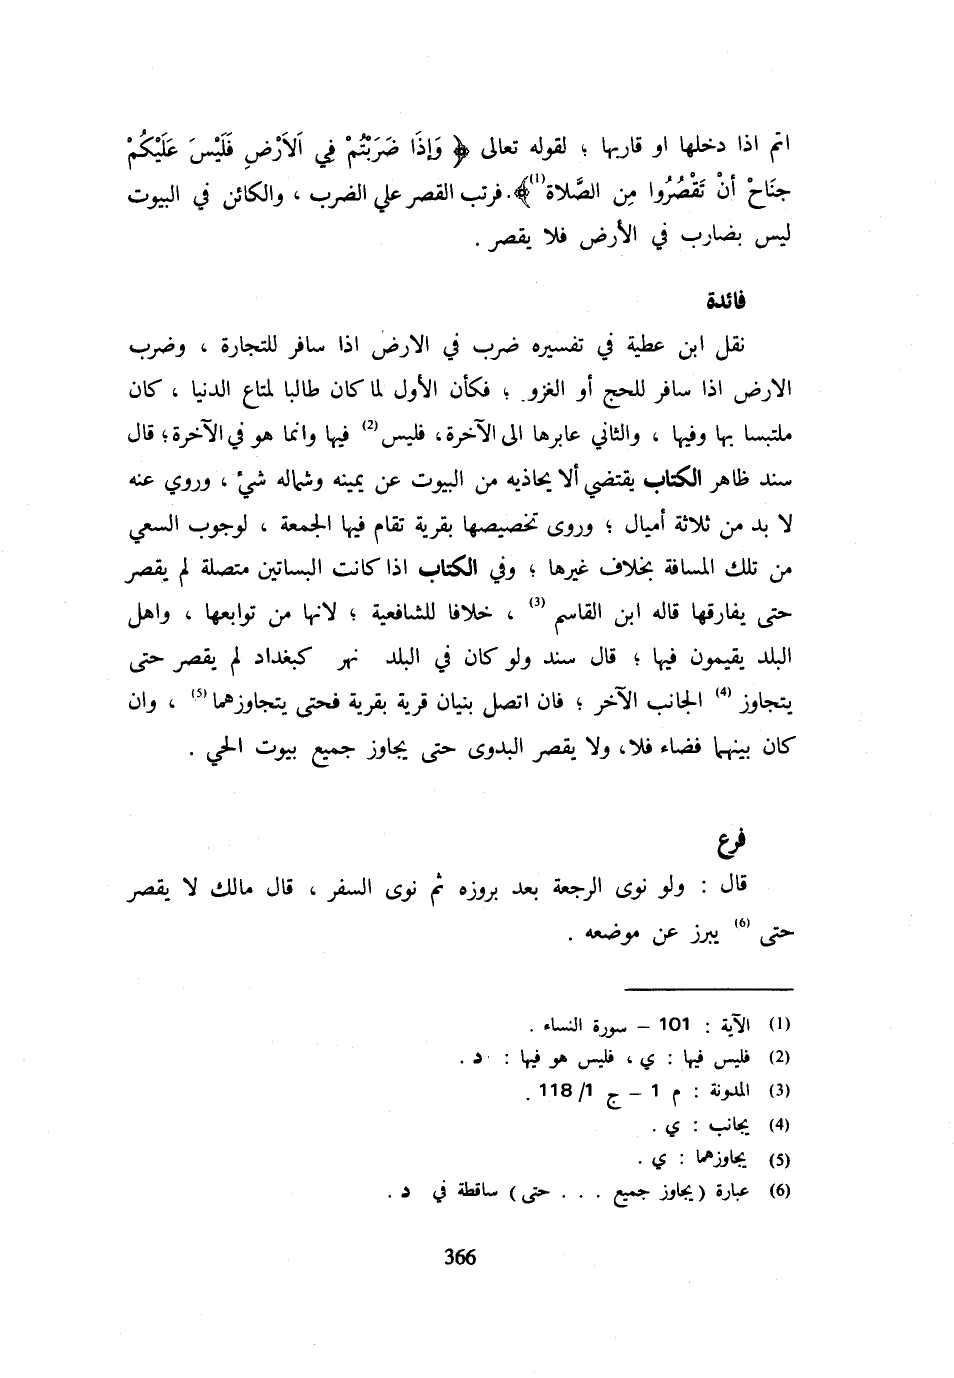 اتم اذا دخلها او قاربها ؛ لقوله تعالى ﴿ وَإذَا ضَرَبْتُمْ فِي اَلاَرْضِ فَلَيْسَ عَلَيْكُمْ
جنَاحْ أنْ تَقْصُرُوا مِن الصَّلاة(1)﴾. فرتب القصر علي الضرب ، والكائن في البيوت
ليس بضارب في الأرض فلا يقصر .
فائدة
نقل ابن عطية في تفسيره ضرب في الارض اذا سافر للتجارة ، وضرب
الارض اذا سافر للحج أو الغزو ؛ فكأن الأول لما كان طالبا لمتاع الدنيا ، كان
ملتبسا بها وفيها ، والثاني عابرها الى الآخرة، فليس(2) فيها وانما هو في الآخرة؛ قال
سند ظاهر الكتاب يقتضي ألا يحاذيه من البيوت عن يمينه وشماله شيْ ، وروي عنه
لا بد من ثلاثة أميال ؛ وروى تخصيصها بقرية تقام فيها الجمعة ، لوجوب السعي
من تلك المسافة بخلاف غيرها ؛ وفي الكتاب اذا كانت البساتين متصلة لم يقصر
حتى يفارقها قاله ابن القاسم (3) ، خلافا للشافعية ؛ لانها من توابعها ، واهل
البلد يقيمون فيها ؛ قال سند ولو كان في البلد نهر كبغداد لم يقصر حتى
يتجاوز (4) الجانب الآخر ؛ فان اتصل بنيان قرية بقرية فحتى يتجاوزهما (5) ، وان
كان بينهما فضاء فلا، ولا يقصر البدوى حتى يجاوز جميع بيوت الحي .
فرع
قال : ولو نوى الرجعة بعد بروزه ثم نوى السفر ، قال مالك لا يقصر
حتى (6) يبرز عن موضعه .
(1) الآية : 101 – سورة النساء .
(2) فليس فيها : ي ، فليس هو فيها : د .
(3) المدونة : م 1 – ج 1/ 118 .
(4) يجانب : ي .
(5) يجاوزهما : ي .
(6) عبارة ( يجاوز جميع . . . حتى ) ساقطة في د .
366